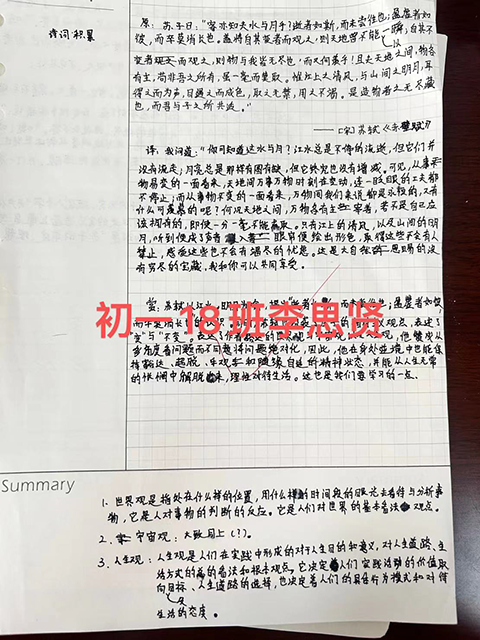 诗词积累
原：苏子曰："客亦知夫水与月乎？逝者如斯，而未尝往也；盈虚者如
彼，而卒莫消长也。盖将自其变者而观之，则天地曾不能一瞬；自其不
变者观之，则物与我皆无尽也，而又何羡乎！且夫天地之间，物各
有主，苟非吾之所有，虽一毫而莫取。惟江上之清风，与山间之明月，耳
得之而为声，目遇之而成色，取之无禁，用之不竭。是造物者之无尽藏
也，而吾与子之所共适。"
——[宋]苏轼《赤壁赋》
译：我问道："你可知道这水与月？江水总是不停的流逝，但它们并
没有流走；月亮总是那样有圆有缺，但它终究也没有增减。可见，从事
物易变的一面看来，天地间万事万物时刻在变动，连一眨眼的工夫都
不停止；而从事物不变的一面看来，万物同我们来说都是永恒的，又有
什么可羡慕的呢？何况天地之间，万物各有主宰者，若不是自己应
该拥有的，即使一分一毫也不能求取。只有江上的清风，以及山间的明
月，听到便成了声音，眼帘便绘出形色，取得这些不会有人
禁止，感受这些也不会有竭尽的忧虑。这是大自然恩赐的没
有穷尽的宝藏，我和你可以共同享受。
初一18班李思贤
变"与"不变"。
多角度看问题而不同意将问题绝对化，因此，他在身处逆境中也能保
持豁达、超脱、乐观和随缘自适的精神状态，并能从人生无常
的怅惘中解脱出来，理性对待生活。这也是我们要学习的一点。
Summary
1. 世界观是指处在什么样的位置，用什么样的时间段的眼光去看待与分析事
物，它是人对事物的判断的反应。它是人们对世界的基本看法观点。
2. 宇宙观：大致同上（？）。
3. 人生观：人生观是人们在实践中形成的对于人生目的和意义，对人生道路、生
活方式的看法和根本观点。它决定着人们实践活动的价值取
向目标、人生道路的选择，也决定着人们的具体行为模式和对待
生活的态度。